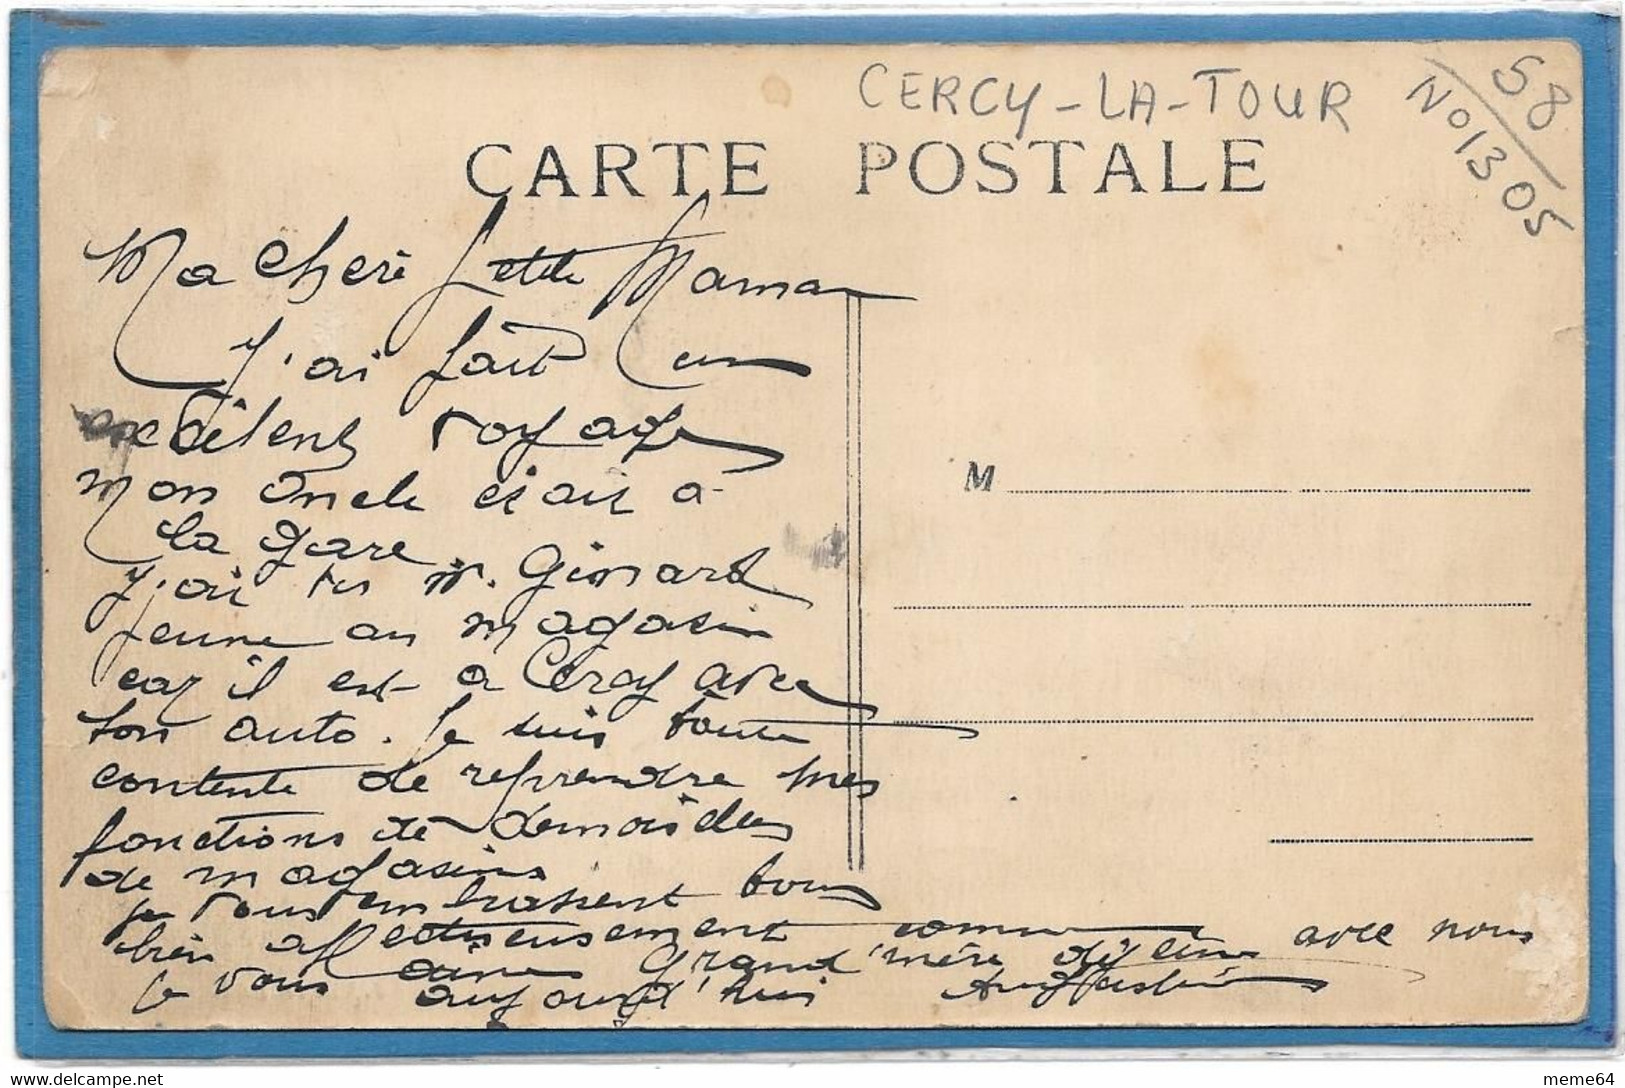 CERCY-LA-TOUR
58
No1305
CARTE POSTALE
Ma chere petite Maman
J'ai fait un
excellent voyage
mon oncle était à
la gare
J'ai M. Ginard
jeune au magasin
car il est a Cercy avec
son auto. Je suis toute
contente de reprendre mes
fonctions de demoiselles
de magasins
Je vous embrassent tous
bien affectueusement comme
je vous aime Grand'mère déjeune avec nous
aujourd'hui
M
meme64